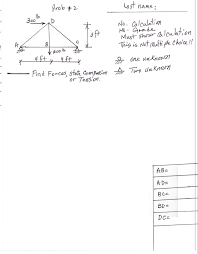 Prob # 2
Last name:
300 lb
D
3 ft
No. Calculation
No. Grade
Must show calculation
This is not multiple choice !!
A
B
C
one unknown
4 ft
4 ft
Two unknown
Find Forces, state Compression
or Tension.
AB=
AD=
BC=
BD=
DC=